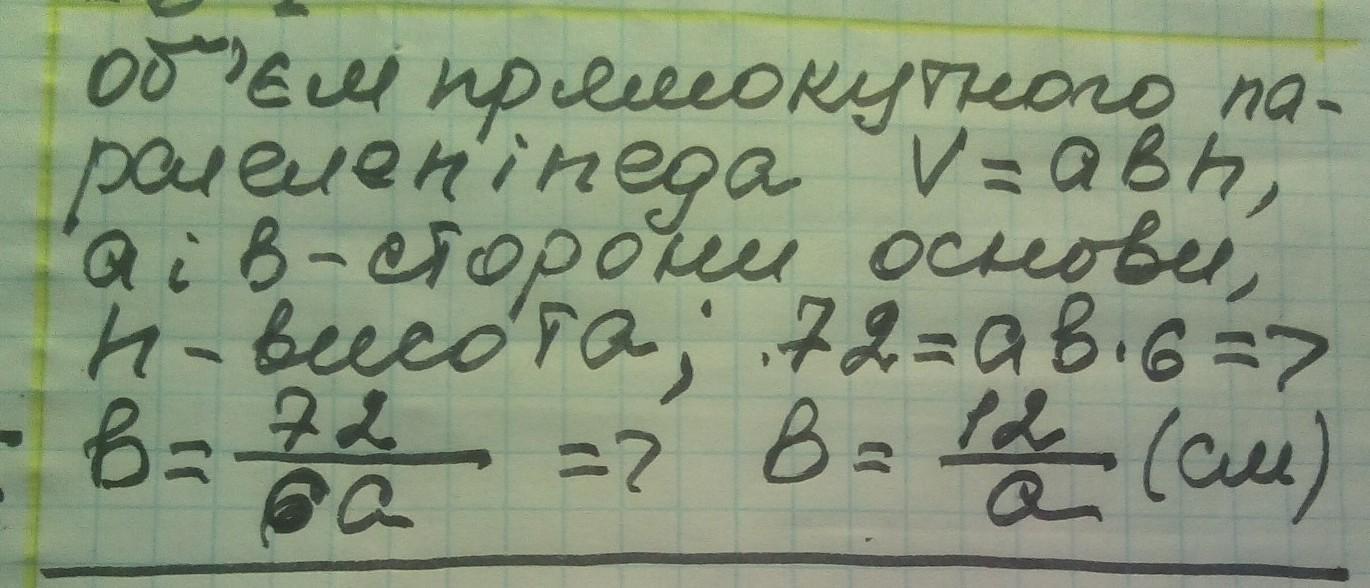 об'єм прямокутного па-
ралелепіпеда V = abh,
a і b - сторони основи,
h - висота; 72 = ab · 6 =>
b = 72/6a => b = 12/a (см)